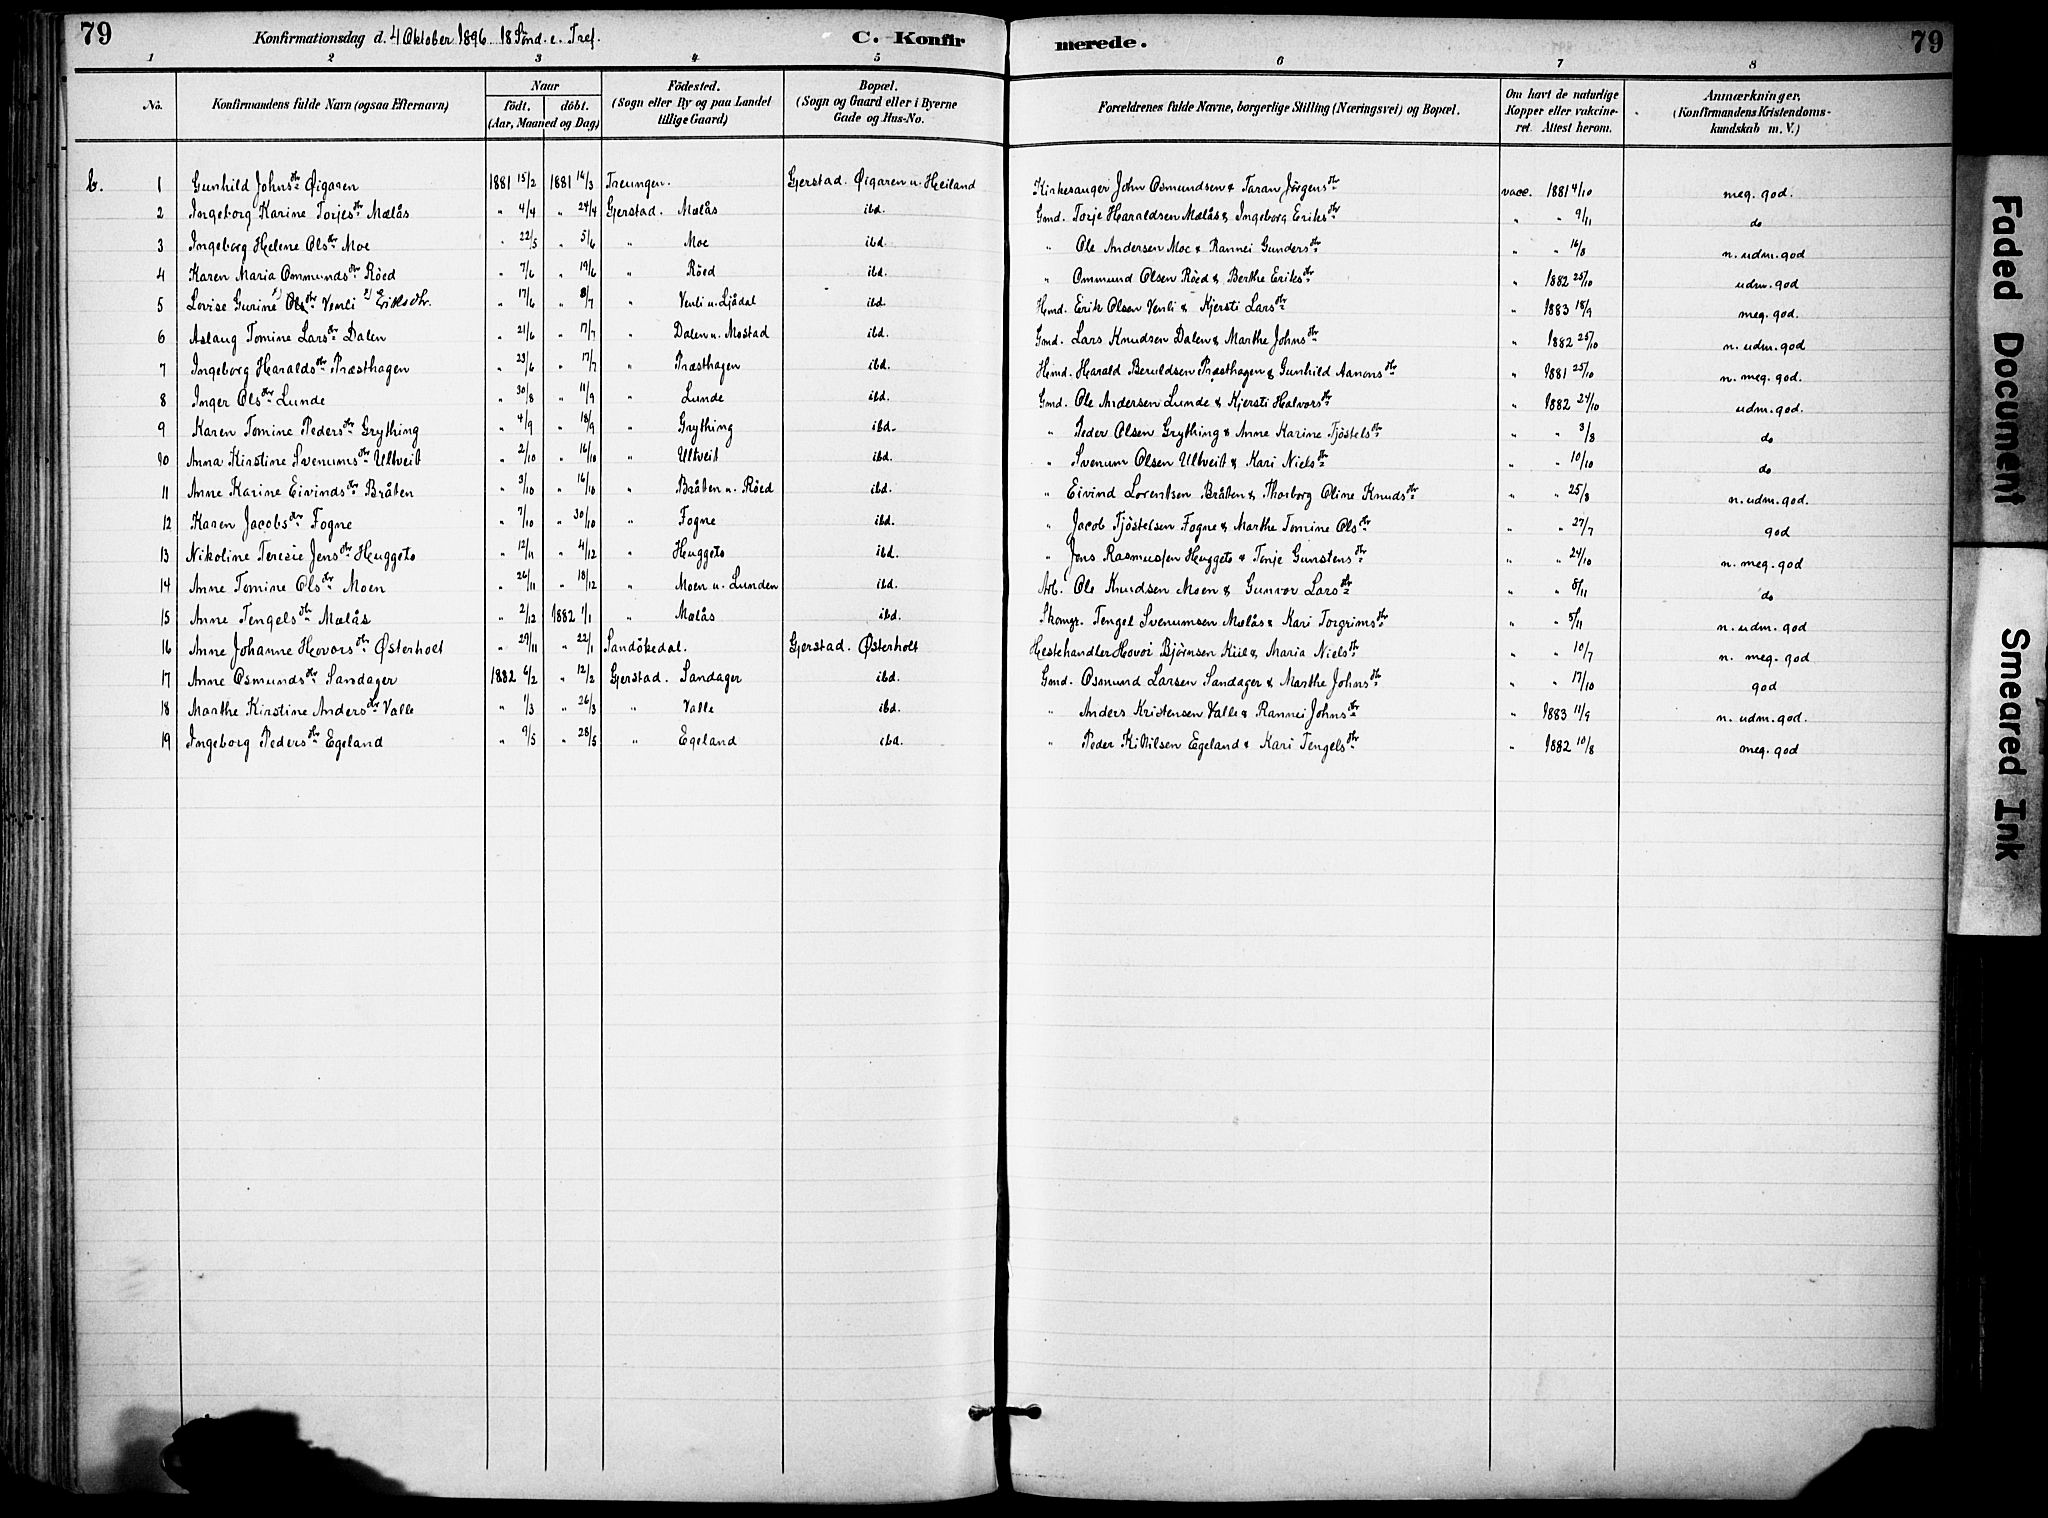 79 Konfirmationsdag d. 4 Oktober 1896. 18 Sönd. e. Tref. C. Konfir merede. 79
1 2 3 4 5 6 7 8
No. Konfirmandens fulde Navn (ogsaa Efternavn) Naar födt. döbt. (Aar, Maaned og Dag) Födested. (Sogn eller By og paa Landet tillige Gaard) Bopæl. (Sogn og Gaard eller i Byerne Gade og Hus-No. Forældrenes fulde Navne, borgerlige Stilling (Næringsvei) og Bopæl. Om havt de naturlige Kopper eller vakcineret. Attest herom. Anmærkninger, (Konfirmandens Kristendomskundskab m. V.)
b. 1 Gunhild Johnsdtr Øigaren 1881 15/2 1881 16/3 Treungen. Gjerstad. Øigaren u. Heiland Kirkesanger John Osmundsen & Taran Jörgensdtr vacc. 1881 4/10 meg. god.
2 Ingeborg Karine Torjesdtr Mælås " 4/4 " 24/4 Gjerstad. Mælås ibd. Gmd. Torje Haraldsen Mælås & Ingeborg Eriksdtr " " 9/11 do
3 Ingeborg Helene Olsdtr Moe " 22/5 " 5/6 " Moe ibd. " Ole Andersen Moe & Rannei Gundersdtr " " 16/8 n. udm. god
4 Karen Maria Ommundsdtr Röed " 7/6 " 19/6 " Röed ibd. " Ommund Olsen Röed & Berthe Eriksdtr " 1882 25/10 udm. god
5 Lovise Gurine 1) Olsdtr Venli 2) Eriksdtr. " 17/6 " 8/7 " Venli u. Ljådal ibd. Hmd. Erik Olsen Venli & Kjersti Larsdtr " 1883 18/9 meg. god.
6 Aslaug Tomine Larsdtr Dalen " 21/6 " 17/7 " Dalen u. Mostad ibd. Gmd. Lars Knudsen Dalen & Marthe Johnsdtr " 1882 25/10 n. udm. god
7 Ingeborg Haraldsdtr Præsthagen " 23/6 " 17/7 " Præsthagen ibd. Hmd. Harald Beruldsen Præsthagen & Gunhild Aanonsdtr " 1881 25/10 n. meg. god.
8 Inger Olsdtr Lunde " 30/8 " 11/9 " Lunde ibd. Gmd. Ole Andersen Lunde & Kjersti Halvorsdtr " 1882 24/10 udm. god.
9 Karen Tomine Pedersdtr Grything " 4/9 " 18/9 " Grything ibd. " Peder Olsen Grything & Anne Karine Tjöstelsdtr " " 3/8 do
10 Anna Kirstine Svenumsdtr Ultveit " 2/10 " 16/10 " Ultveit ibd. " Svenum Olsen Ultveit & Kari Nielsdtr " " 10/10 do
11 Anne Karine Eivindsdtr Bråten " 3/10 " 16/10 " Bråten u. Röed ibd. " Eivind Lorentsen Bråten & Thorborg Oline Knudsdtr " " 25/8 n. udm. god.
12 Karen Jacobsdtr Fogne " 7/10 " 30/10 " Fogne ibd. " Jacob Tjöstelsen Fogne & Marthe Tomine Olsdtr " " 27/7 god
13 Nikoline Teresie Jensdtr Huggeto " 12/11 " 4/12 " Huggeto ibd. " Jens Rasmussen Huggeto & Tonje Gunstensdtr " " 24/10 n. meg. god
14 Anne Tomine Olsdtr Moen " 26/11 " 18/12 " Moen u. Lunden ibd. Arb. Ole Knudsen Moen & Gunvor Larsdtr " " 8/11 do
15 Anne Tengelsdtr Mælås " 2/12 1882 1/1 " Mælås ibd. Skomgr. Tengel Svenumsen Mælås & Kari Torgrimsdtr " " 5/11 n. udm. god
16 Anne Johanne Hovorsdtr Østerholt " 29/11 " 22/1 Sandökedal. Gjerstad. Østerholt Hestehandler Hovor Björnsen Kiil & Maria Nielsdtr " " 10/7 n. meg. god
17 Anne Osmundsdtr Sandager 1882 6/2 " 12/2 Gjerstad. Sandager ibd. Gmd. Osmund Larsen Sandager & Marthe Johnsdtr " " 17/10 god
18 Marthe Kirstine Andersdtr Valle " 1/3 " 26/3 " Valle ibd. " Anders Kristensen Valle & Rannei Johnsdtr " 1883 11/9 n. udm. god.
19 Ingeborg Pedersdtr Egeland " 9/5 " 28/5 " Egeland ibd. " Peder Kittilsen Egeland & Kari Tengelsdtr " 1882 10/8 meg. god
Faded Document
Smeared Ink